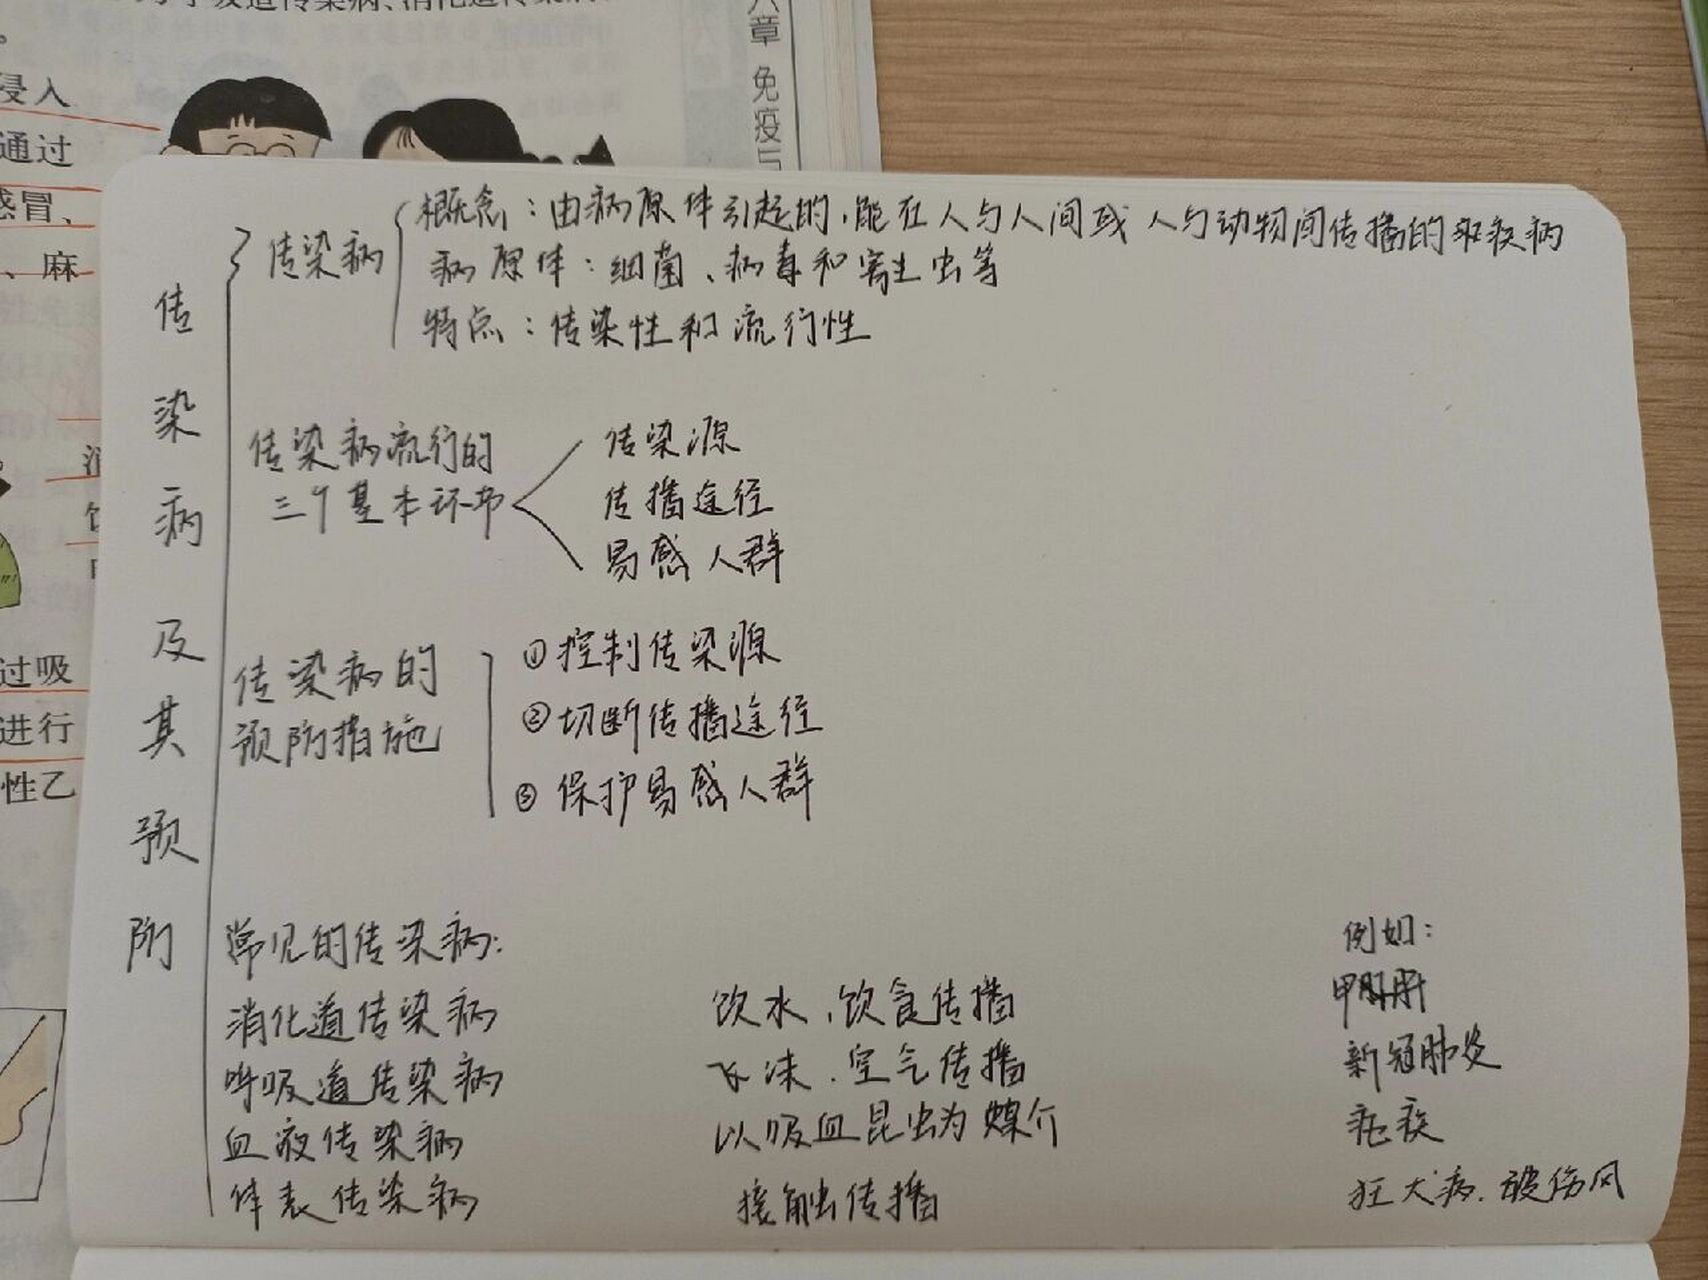 呼吸道传染病、消化道传染病
。
六章 免疫与
侵入
通过
感冒、
、麻
过吸
进行
性乙
传染病及其预防
传染病
概念：由病原体引起的，能在人与人间或人与动物间传播的疾病
病原体：细菌、病毒和寄生虫等
特点：传染性和流行性
传染病流行的
三个基本环节
传染源
传播途径
易感人群
传染病的
预防措施
①控制传染源
②切断传播途径
③保护易感人群
常见的传染病：
例如：
消化道传染病 饮水、饮食传播 甲肝
呼吸道传染病 飞沫、空气传播 新冠肺炎
血液传染病 以吸血昆虫为媒介 疟疾
体表传染病 接触传播 狂犬病、破伤风